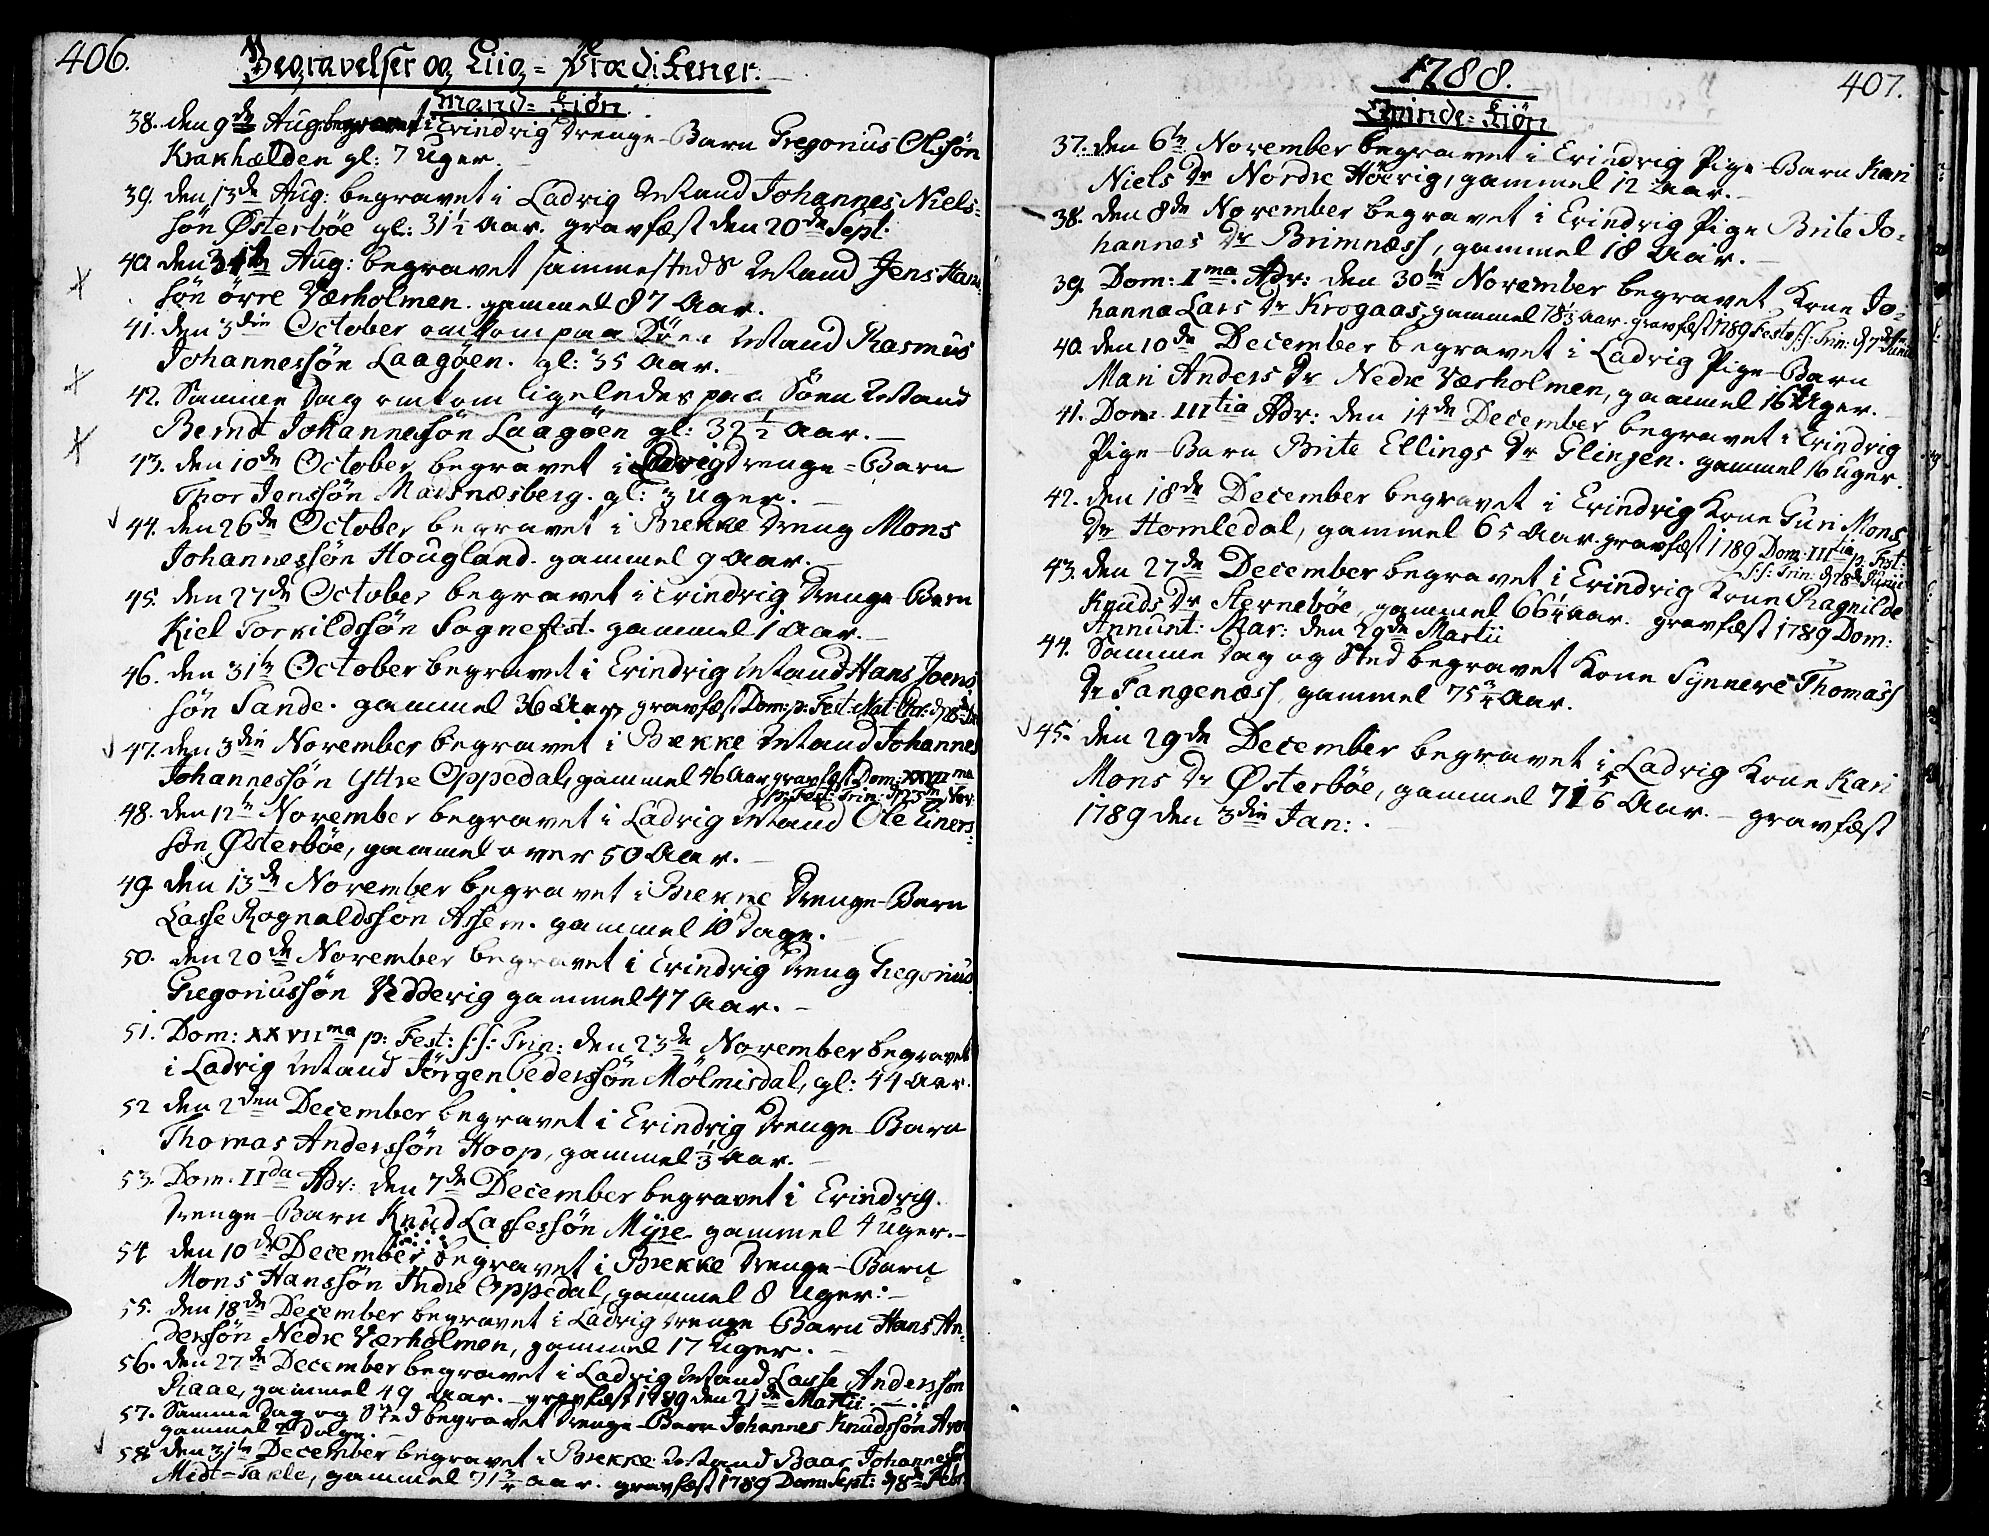 406.
Begravelser og Liig-Prædikener.
Mand-Kiøn.
38. den 9de Aug: begravet i Evindvig Drenge-Barn Gregorius Olssøn
Krakhælden gl: 7 Uger.
39. den 13de Aug: begravet i Ladvig Mand Johannes Niels-
søn Østerbøe gl: 31 1/2 Aar. gravfæst den 20de Sept.
40. den Aug: begravet sammesteds Mand Jens Hans-
søn øvre Værholmen. gammel 87 Aar.
41. den 3die October omkom paa Söen Mand Rasmus
Johannessøn Laagøen. gl: 35 Aar.
42. Samme Dag omkom ligeledes paa Søen Mand
Berndt Johannessøn Laagøen gl: 32 1/2 Aar.
43. den 10de October begravet i Ladvig Drenge-Barn
Thor Jenssøn Marsnæsberg. gl: 3 Uger.
44. den 26de October begravet i Brekke Dreng Mons
Johannessøn Hougland. gammel 9 Aar.
45. den 27de October begravet i Evindvig Drenge-Barn
Kiel Torkildssøn Sognefest. gammel 1 Aar.
46. den 31te October begravet i Evindvig Mand Hans Joens-
søn Sande. gammel 36 Aar, gravfæst Dom: p: Fest: Nat: Chr: d: 28de
47. den 3die November begravet i Brekke Mand Johannes
Johannessøn Yttre Oppedal, gammel 46 Aar gravfæst Dom: XXVIIma
p: Fest: Trin: d: 23de Nov:
48. den 12te November begravet i Ladvig Mand Ole Einers-
søn Østerbøe, gammel over 50 Aar.
49. den 13de November begravet i Brekke Drenge-Barn
Lasse Rognaldssøn Assem. gammel 10 Dage.
50. den 20de November begravet i Evindvig Dreng Gregorius
Gregoriussøn Vedvig gammel 47 Aar.
51. Dom: XXVIIma p: Fest: s:s: Trin: den 23de November begravet
i Ladvig Mand Jörgen Pederssøn Mölmisdal, gl: 44 Aar.
52 den 2den December begravet i Evindvig Drenge-Barn
Thomas Anderssøn Hoop, gammel 1/3 Aar.
53. Dom. IIda Adv: den 7de December begravet i Evindvig.
Drenge-Barn Knud Lassessøn Mÿre. gammel 4 Uger.
54 den 10de December begravet i Brekke Drenge-Barn
Mons Hanssøn Indre Oppedal, gammel 8 Uger.
55. den 18de December begravet i Ladvig Drenge Barn Hans An-
derssøn Nedre Værholmen, gammel 17 Uger.
56. den 27de December begravet i Ladvig Mand Lasse Anderssøn
Risae, gammel 49 Aar. gravfæst 1789 den 21de Martii.
57. Samme Dag og Sted begravet Drenge-Barn Johannes Knudssøn
gammel Dage.
58 den 31te December begravet i Brekke Mand Baar Johannessøn
Midt-Takle, gammel 71 3/4 Aar. gravfæst 1789 Dom: Sept: d: 8de Febr:
1788.
407.
Qvinde-Kiøn
37. den 6te November begravet i Evindvig Pige-Barn Kari
Niels Dr Nordre Høevig, gammel 12 Aar.
38. den 8de November begravet i Evindvig Pige Brite Jo-
hannes Dr Brimnæss, gammel 18 Aar.
39. Dom: Ima Adv: den 30te November begravet Kone Jo-
hanna Lars Dr Krogaas, gammel 78 1/3 Aar. gravfæst 1789 Festo s:s: Trin: d: 7de Junii
40. den 10de December begravet i Ladvig Pige-Barn
Mari Anders Dr Nedre Værholmen, gammel 16 Uger.
41. Dom: IIItia Adv: den 14de December begravet i Evindvig
Pige-Barn Brite Ellings Dr Glinjen. gammel 16 Uger.
42. den 18de December begravet i Evindvig Kone Guri Mons
Dr Homledal, gammel 65 Aar. gravfæst 1789 Dom: IIItia p: Fest:
s:s: Trin: d: 28de Junii
43. den 27de December begravet i Evindvig Kone Ragnilde
Knuds Dr Sternebøe, gammel 66 1/4 Aar. gravfæst 1789 Dom:
Annunt: Mar: den 29de Martii
44. Samme Dag og Sted begravet Kone Synneve Thomass
Dr Tangenæss, gammel 75 3/4 Aar.
45. den 29de December begravet i Ladvig Kone Kari
Mons Dr Østerbøe, gammel 71 5/6 Aar. – gravfæst
1789 den 3die Jan: